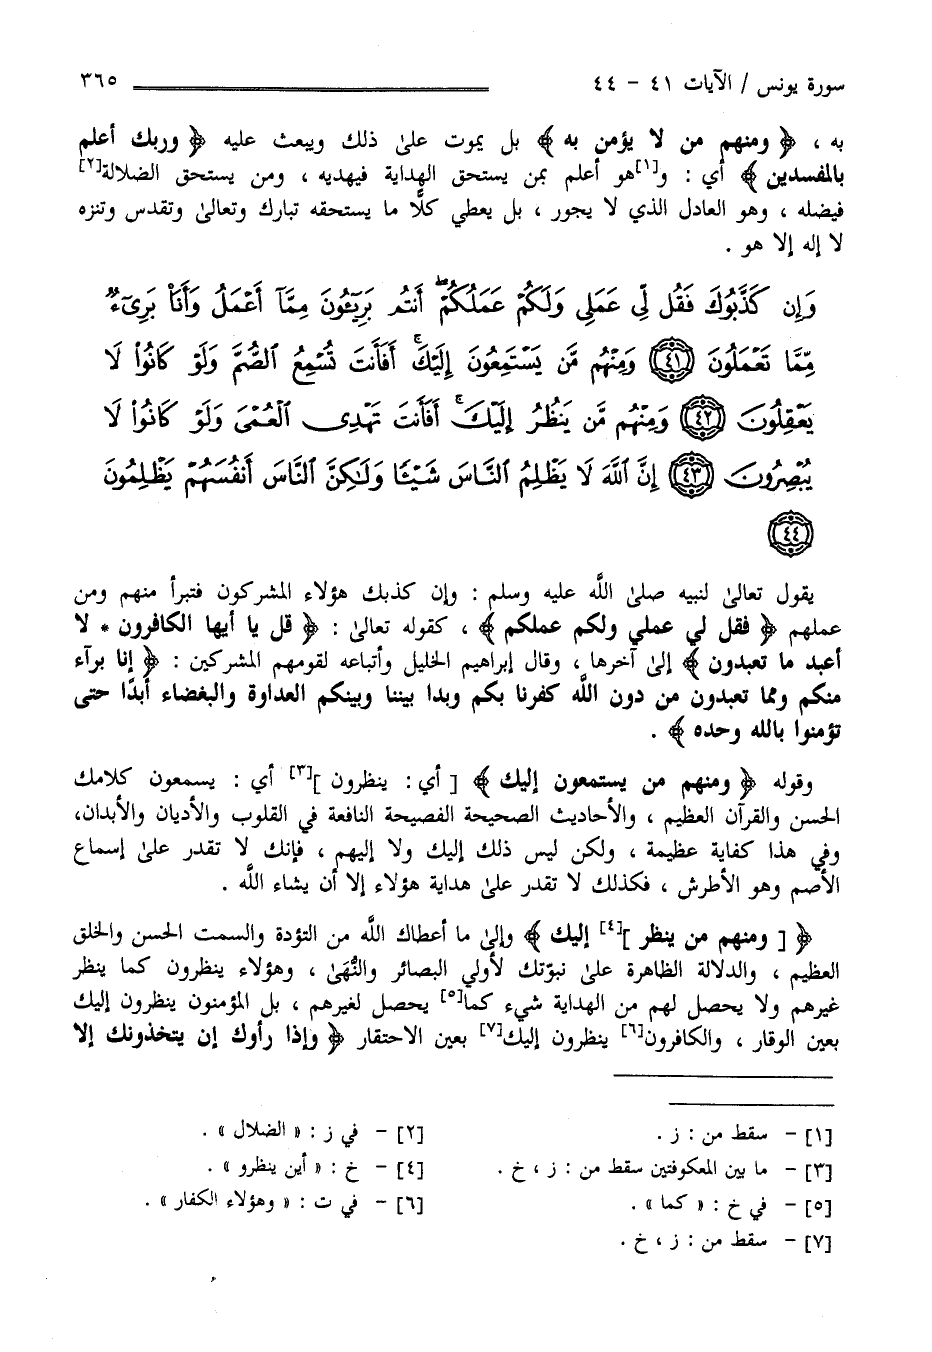 سورة يونس / الآيات ٤١ - ٤٤ ٣٦٥
به ، ﴿ ومنهم من لا يؤمن به ﴾ بل يموت علىٰ ذلك ويبعث عليه ﴿ وربك أعلم
بالمفسدين ﴾ أي : و[١]هو أعلم بمن يستحق الهداية فيهديه ، ومن يستحق الضلالة[٢]
فيضله ، وهو العادل الذي لا يجور ، بل يعطي كلًّا ما يستحقه تبارك وتعالىٰ وتقدس وتنزه
لا إله إلا هو .
وَإِن كَذَّبُوكَ فَقُل لِّي عَمَلِي وَلَكُمْ عَمَلُكُمْ ۖ أَنتُم بَرِيٓـُٔونَ مِمَّآ أَعْمَلُ وَأَنَا۠ بَرِىٓءٌ
مِّمَّا تَعْمَلُونَ ﴿٤١﴾ وَمِنْهُم مَّن يَسْتَمِعُونَ إِلَيْكَ ۚ أَفَأَنتَ تُسْمِعُ ٱلصُّمَّ وَلَوْ كَانُوا۟ لَا
يَعْقِلُونَ ﴿٤٢﴾ وَمِنْهُم مَّن يَنظُرُ إِلَيْكَ ۚ أَفَأَنتَ تَهْدِى ٱلْعُمْىَ وَلَوْ كَانُوا۟ لَا
يُبْصِرُونَ ﴿٤٣﴾ إِنَّ ٱللَّهَ لَا يَظْلِمُ ٱلنَّاسَ شَيْـًٔا وَلَـٰكِنَّ ٱلنَّاسَ أَنفُسَهُمْ يَظْلِمُونَ
﴿٤٤﴾
يقول تعالىٰ لنبيه صلىٰ اللَّه عليه وسلم : وإن كذبك هؤلاء المشركون فتبرأ منهم ومن
عملهم ﴿ فقل لي عملي ولكم عملكم ﴾ ، كقوله تعالىٰ : ﴿ قل يا أيها الكافرون * لا
أعبد ما تعبدون ﴾ إلىٰ آخرها ، وقال إبراهيم الخليل وأتباعه لقومهم المشركين : ﴿ إنا برآء
منكم ومما تعبدون من دون اللَّه كفرنا بكم وبدا بيننا وبينكم العداوة والبغضاء أبدًا حتى
تؤمنوا بالله وحده ﴾ .
وقوله ﴿ ومنهم من يستمعون إليك ﴾ [ أي : ينظرون ][٣] أي : يسمعون كلامك
الحسن والقرآن العظيم ، والأحاديث الصحيحة الفصيحة النافعة في القلوب والأديان والأبدان،
وفي هذا كفاية عظيمة ، ولكن ليس ذلك إليك ولا إليهم ، فإنك لا تقدر علىٰ إسماع
الأصم وهو الأطرش ، فكذلك لا تقدر علىٰ هداية هؤلاء إلا أن يشاء اللَّه .
﴿ [ ومنهم من ينظر ][٤] إليك ﴾ وإلىٰ ما أعطاك اللَّه من التؤدة والسمت الحسن والخلق
العظيم ، والدلالة الظاهرة علىٰ نبوّتك لأولي البصائر والنُّهَىٰ ، وهؤلاء ينظرون كما ينظر
غيرهم ولا يحصل لهم من الهداية شيء كما[٥] يحصل لغيرهم ، بل المؤمنون ينظرون إليك
بعين الوقار ، والكافرون[٦] ينظرون إليك[٧] بعين الاحتقار ﴿ وإذا رأوك إن يتخذونك إلا
[١] - سقط من : ز . [٢] - في ز : « الضلال » .
[٣] - ما بين المعكوفتين سقط من : ز ، خ . [٤] - خ : « أين ينظرو » .
[٥] - في خ : « كما » . [٦] - في ت : « وهؤلاء الكفار » .
[٧] - سقط من : ز ، خ .